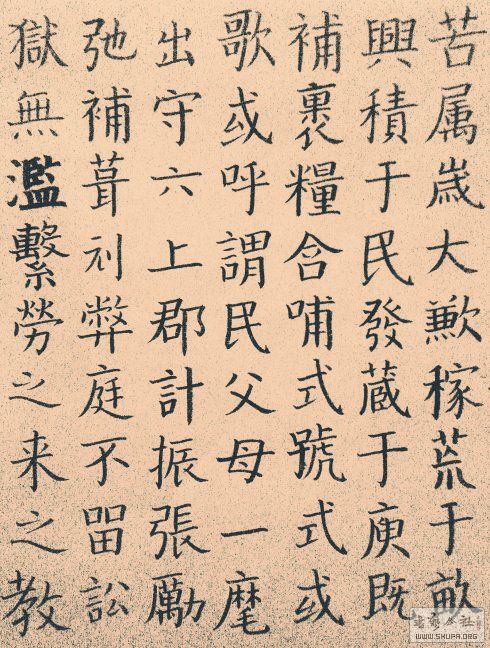 苦属歳大歉稼荒于畝
興積于民發蔵于庚既
補裹糧含哺式號式或
歌或呼謂民父母一麾
出守六上郡計振張勵
弛補葺刓弊庭不留訟
獄無濫繫勞之来之教
WWW.SHUFA.ORG